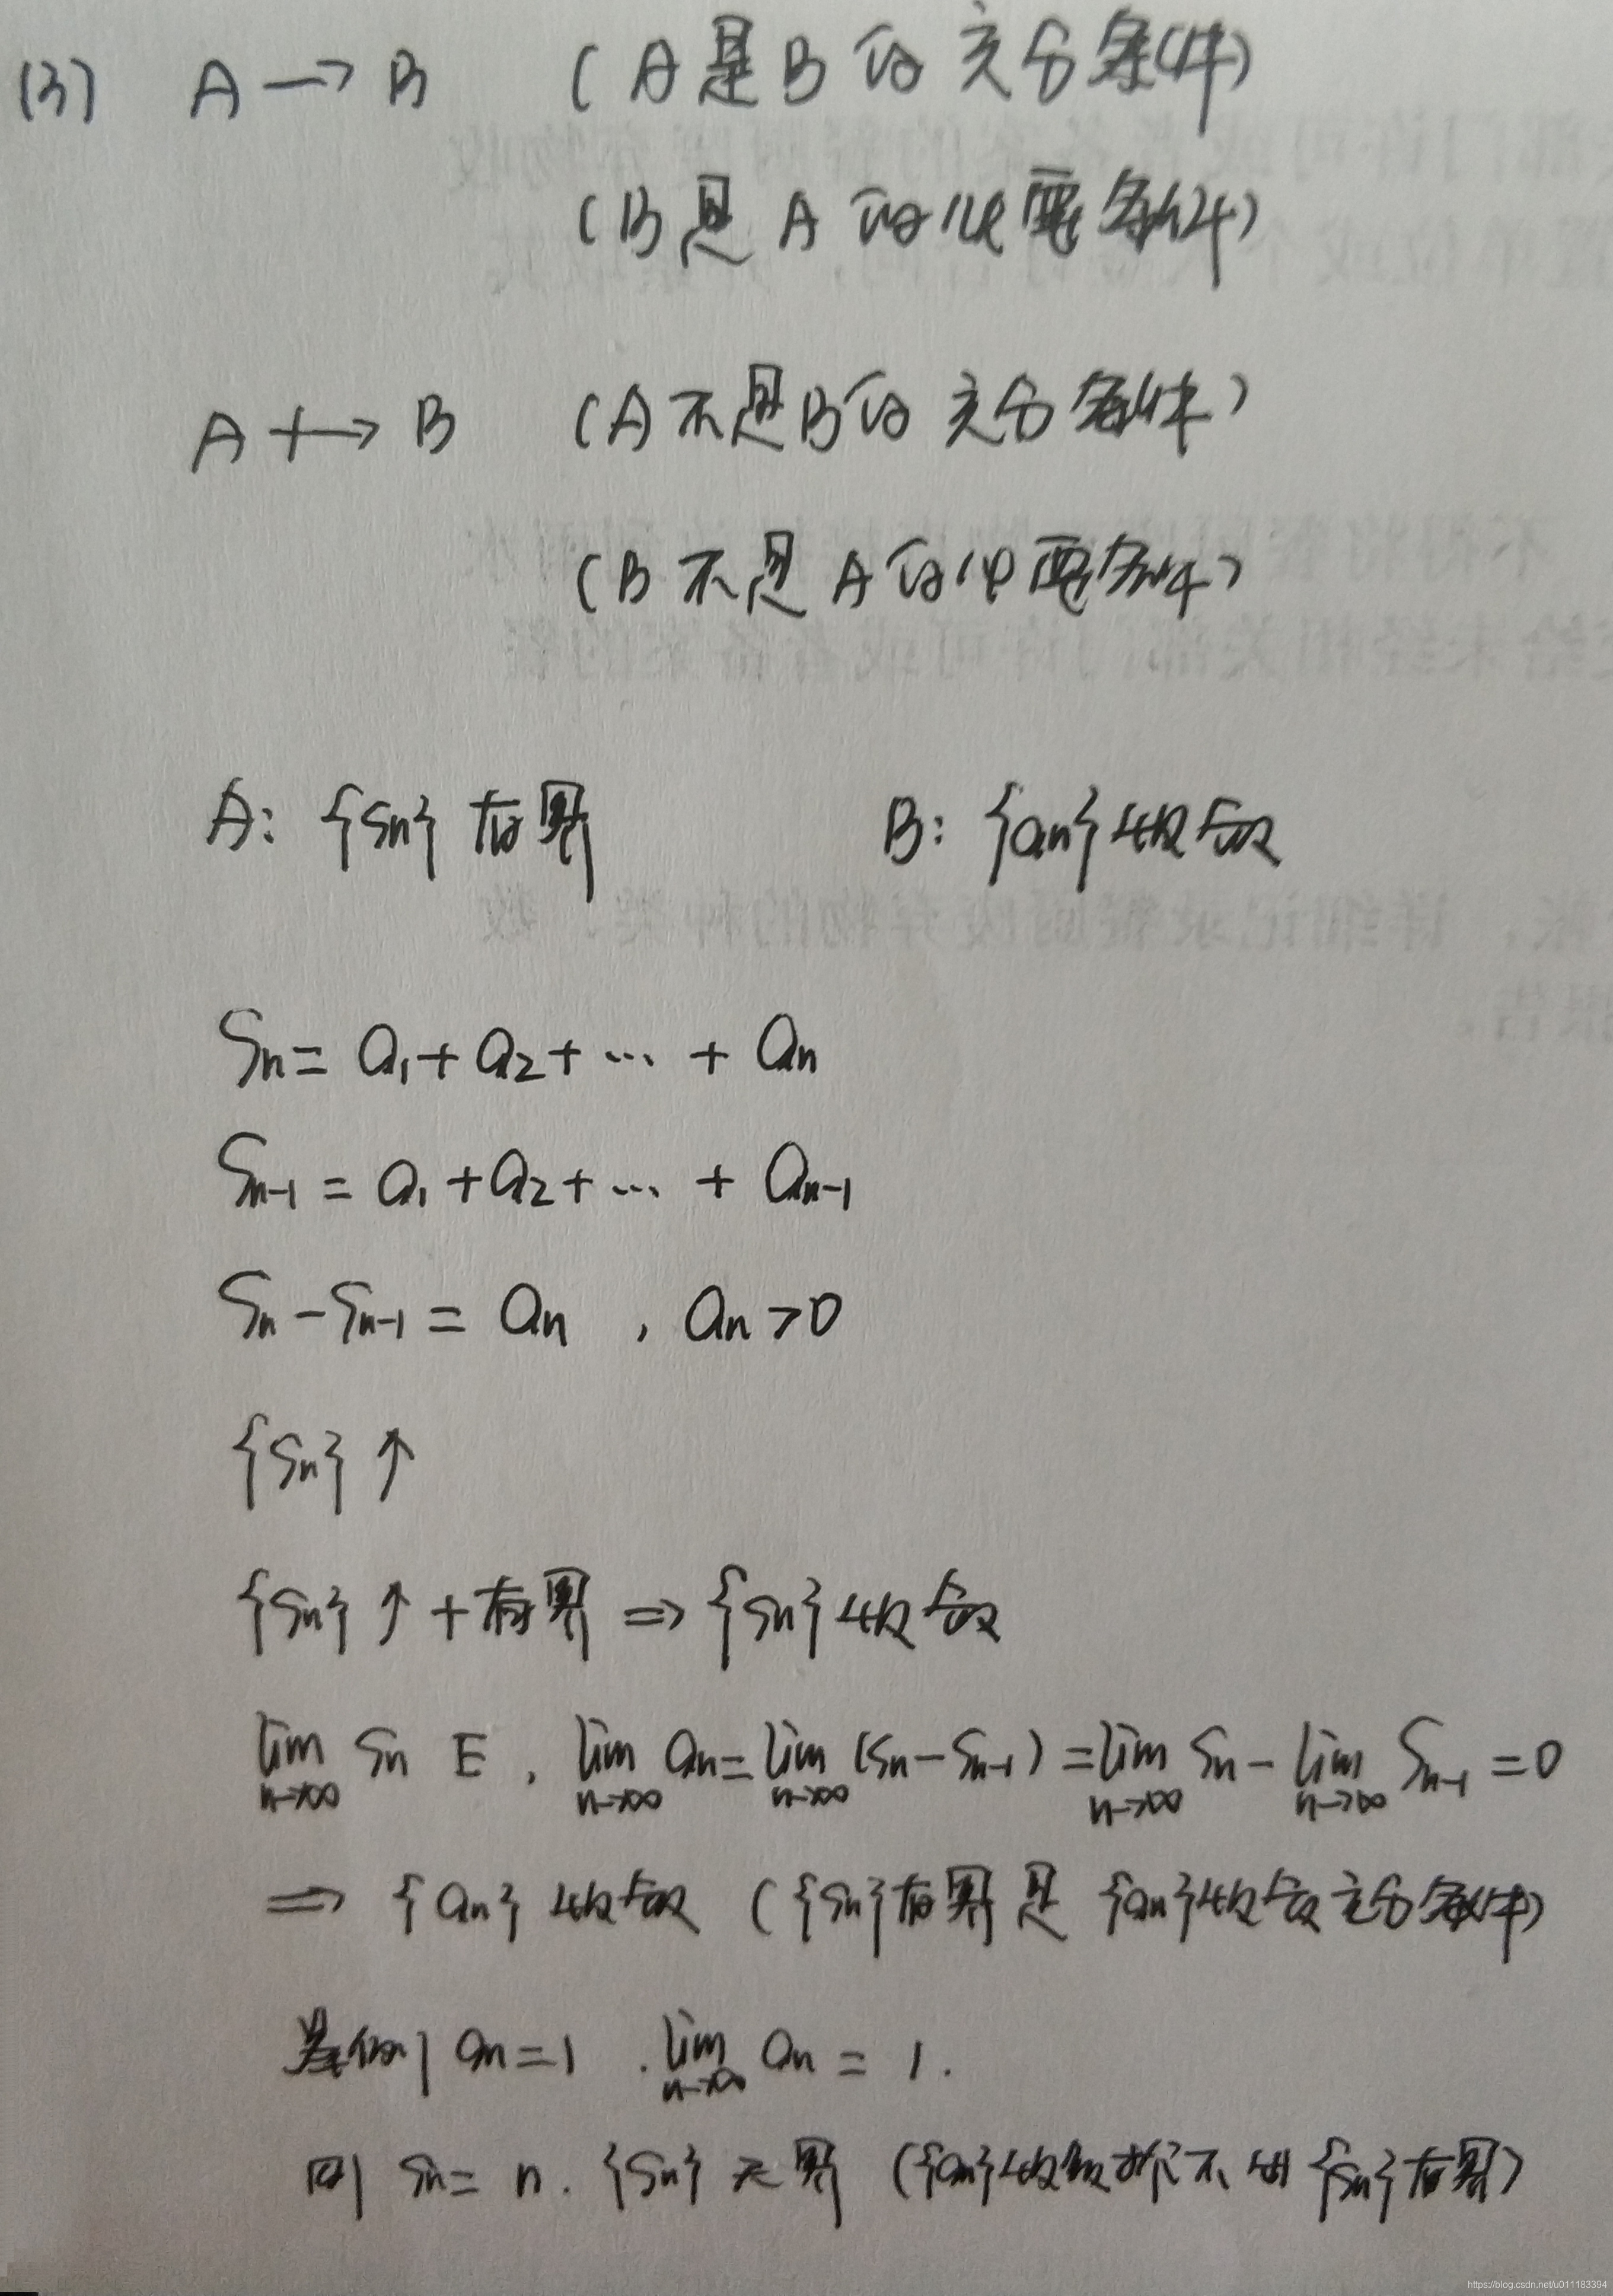 (3) A → B (A是B的充分条件)
(B是A的必要条件)
A +→ B (A不是B的充分条件)
(B不是A的必要条件)
A: {Sn}有界 B: {an}收敛
Sn = a1 + a2 + ... + an
Sn-1 = a1 + a2 + ... + an-1
Sn - Sn-1 = an , an > 0
{Sn}↑
{Sn}↑ + 有界 ⇒ {Sn}收敛
lim n→∞ Sn E , lim n→∞ an = lim n→∞ (Sn - Sn-1) = lim n→∞ Sn - lim n→∞ Sn-1 = 0
⇒ {an}收敛 ({Sn}有界是{an}收敛充分条件)
an = 1 . lim n→∞ an = 1 .
则 Sn = n . {Sn}无界 ({an}收敛推不出{Sn}有界)
https://blog.csdn.net/u011183394